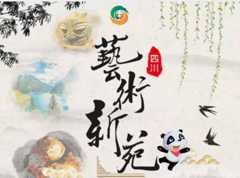 四川
藝術
新苑